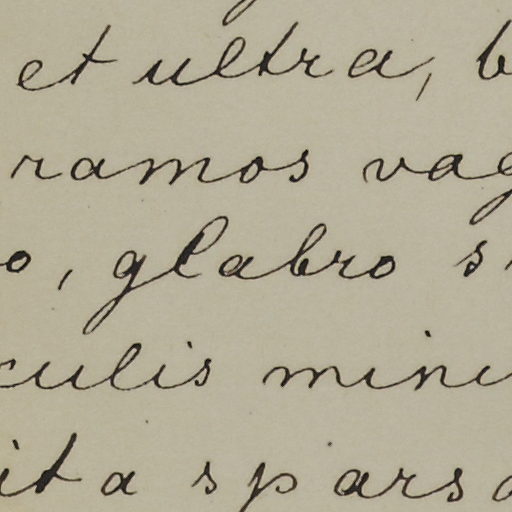 et ultra, b
ramos vag
o, glabro s
culis mini
ita spars